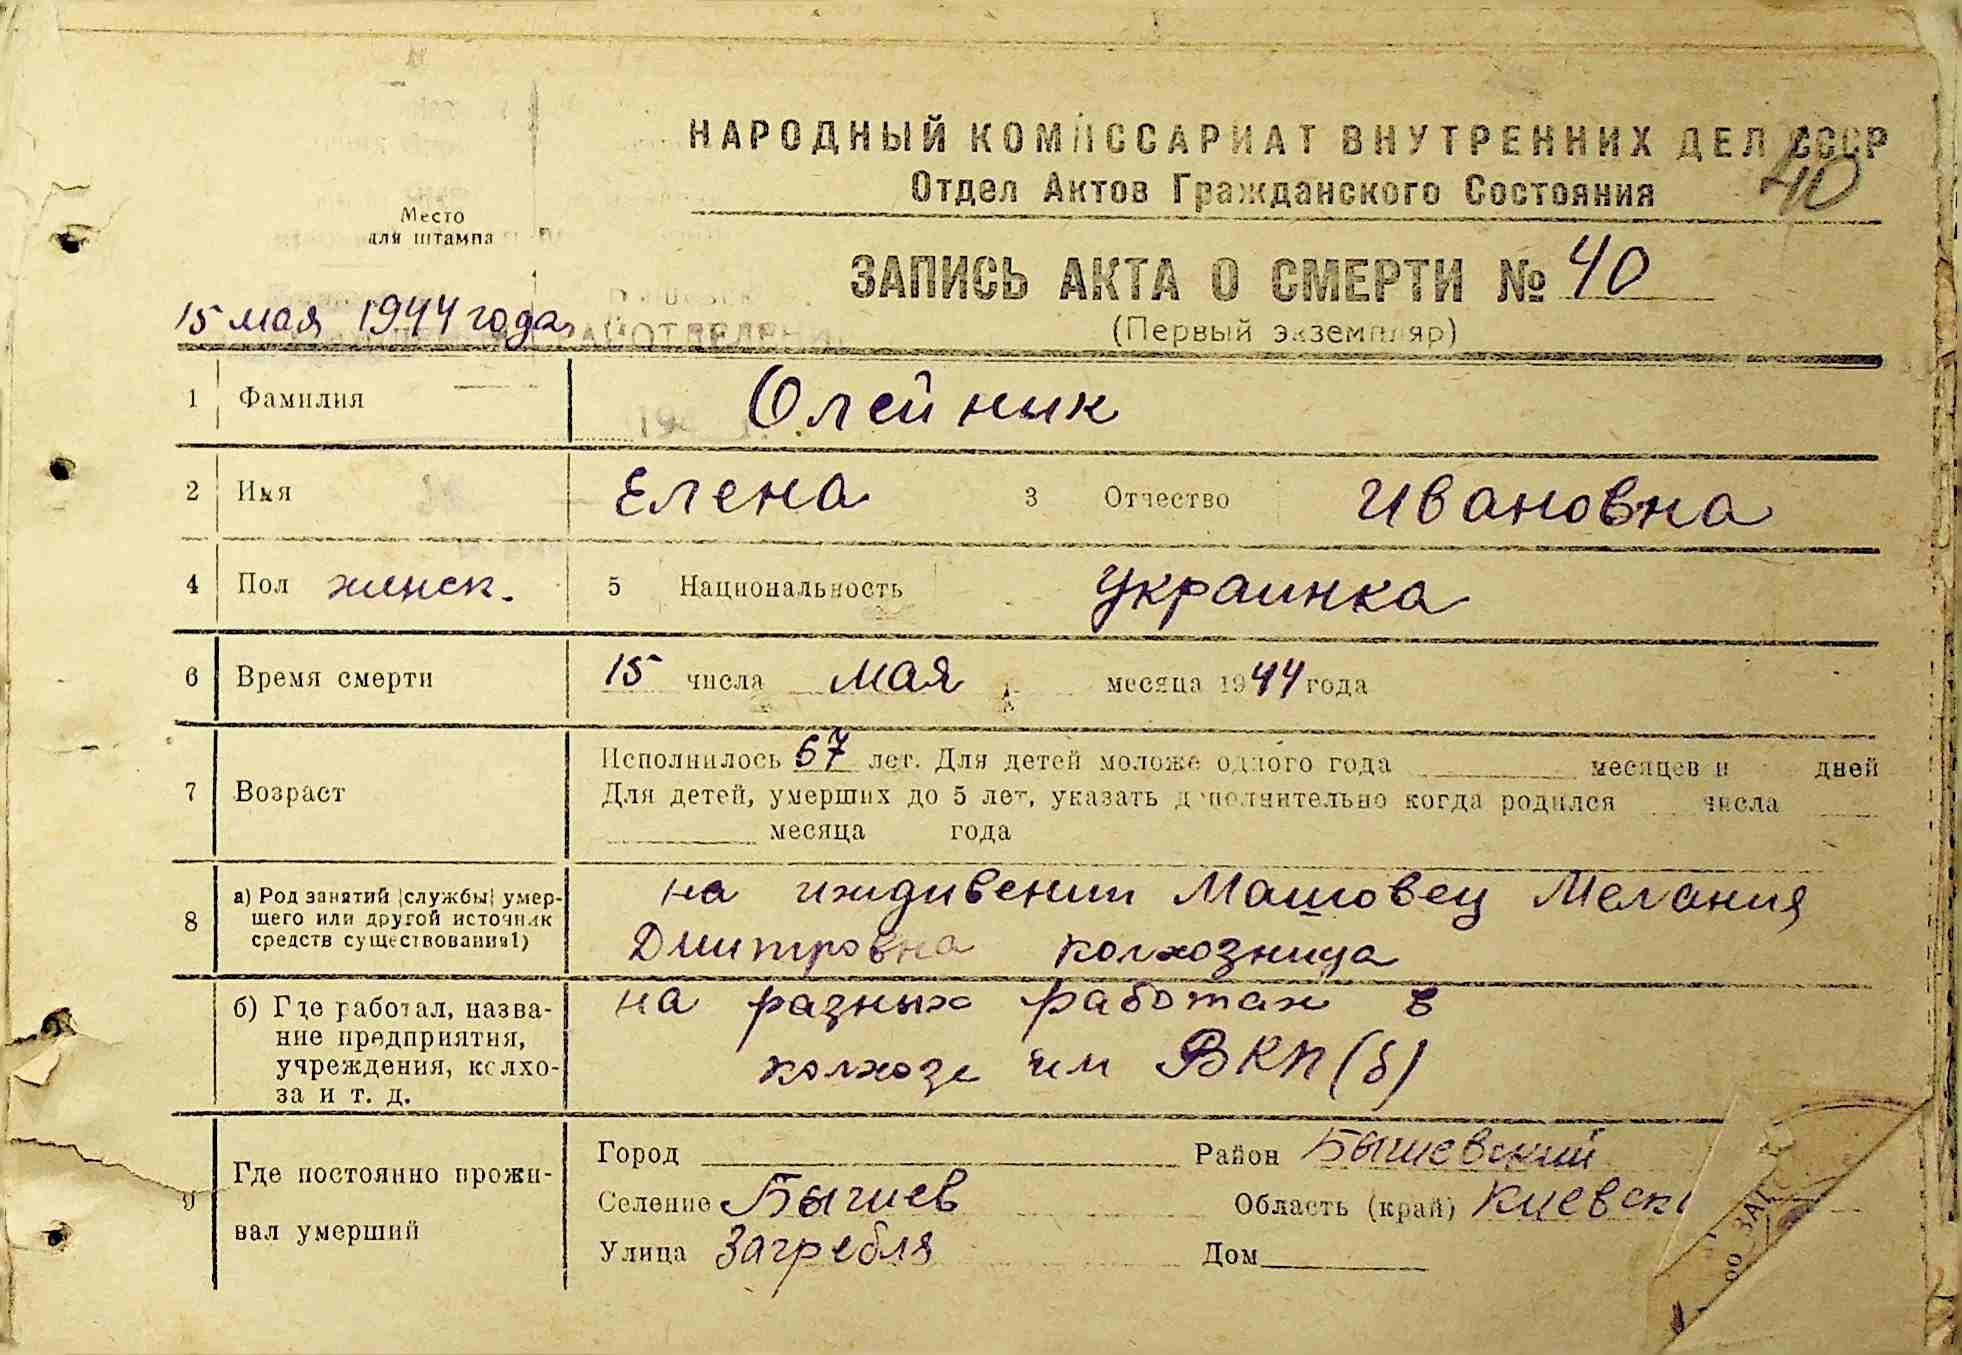 НАРОДНЫЙ КОМИССАРИАТ ВНУТРЕННИХ ДЕЛ СССР
40
Отдел Актов Гражданского Состояния
Место
для штампа
ЗАПИСЬ АКТА О СМЕРТИ № 40
15 мая 1944 года
(Первый экземпляр)
1 Фамилия Олейник
2 Имя Елена 3 Отчество Ивановна
4 Пол женск. 5 Национальность украинка
6 Время смерти 15 числа мая месяца 1944 года
7 Возраст
Исполнилось 67 лет. Для детей моложе одного года месяцев и дней
Для детей, умерших до 5 лет, указать дополнительно когда родился числа
месяца года
8 а) Род занятий (службы) умер-
шего или другой источник
средств существования1)
на иждивении Машовец Мелания
Дмитровна колхозница
б) Где работал, назва-
ние предприятия,
учреждения, колхо-
за и т. д.
на разных работах в
колхозе им ВКП(б)
9 Где постоянно прожи-
вал умерший
Город Район Бышевский
Селение Бышев Область (край) Киевск
Улица Загребля Дом